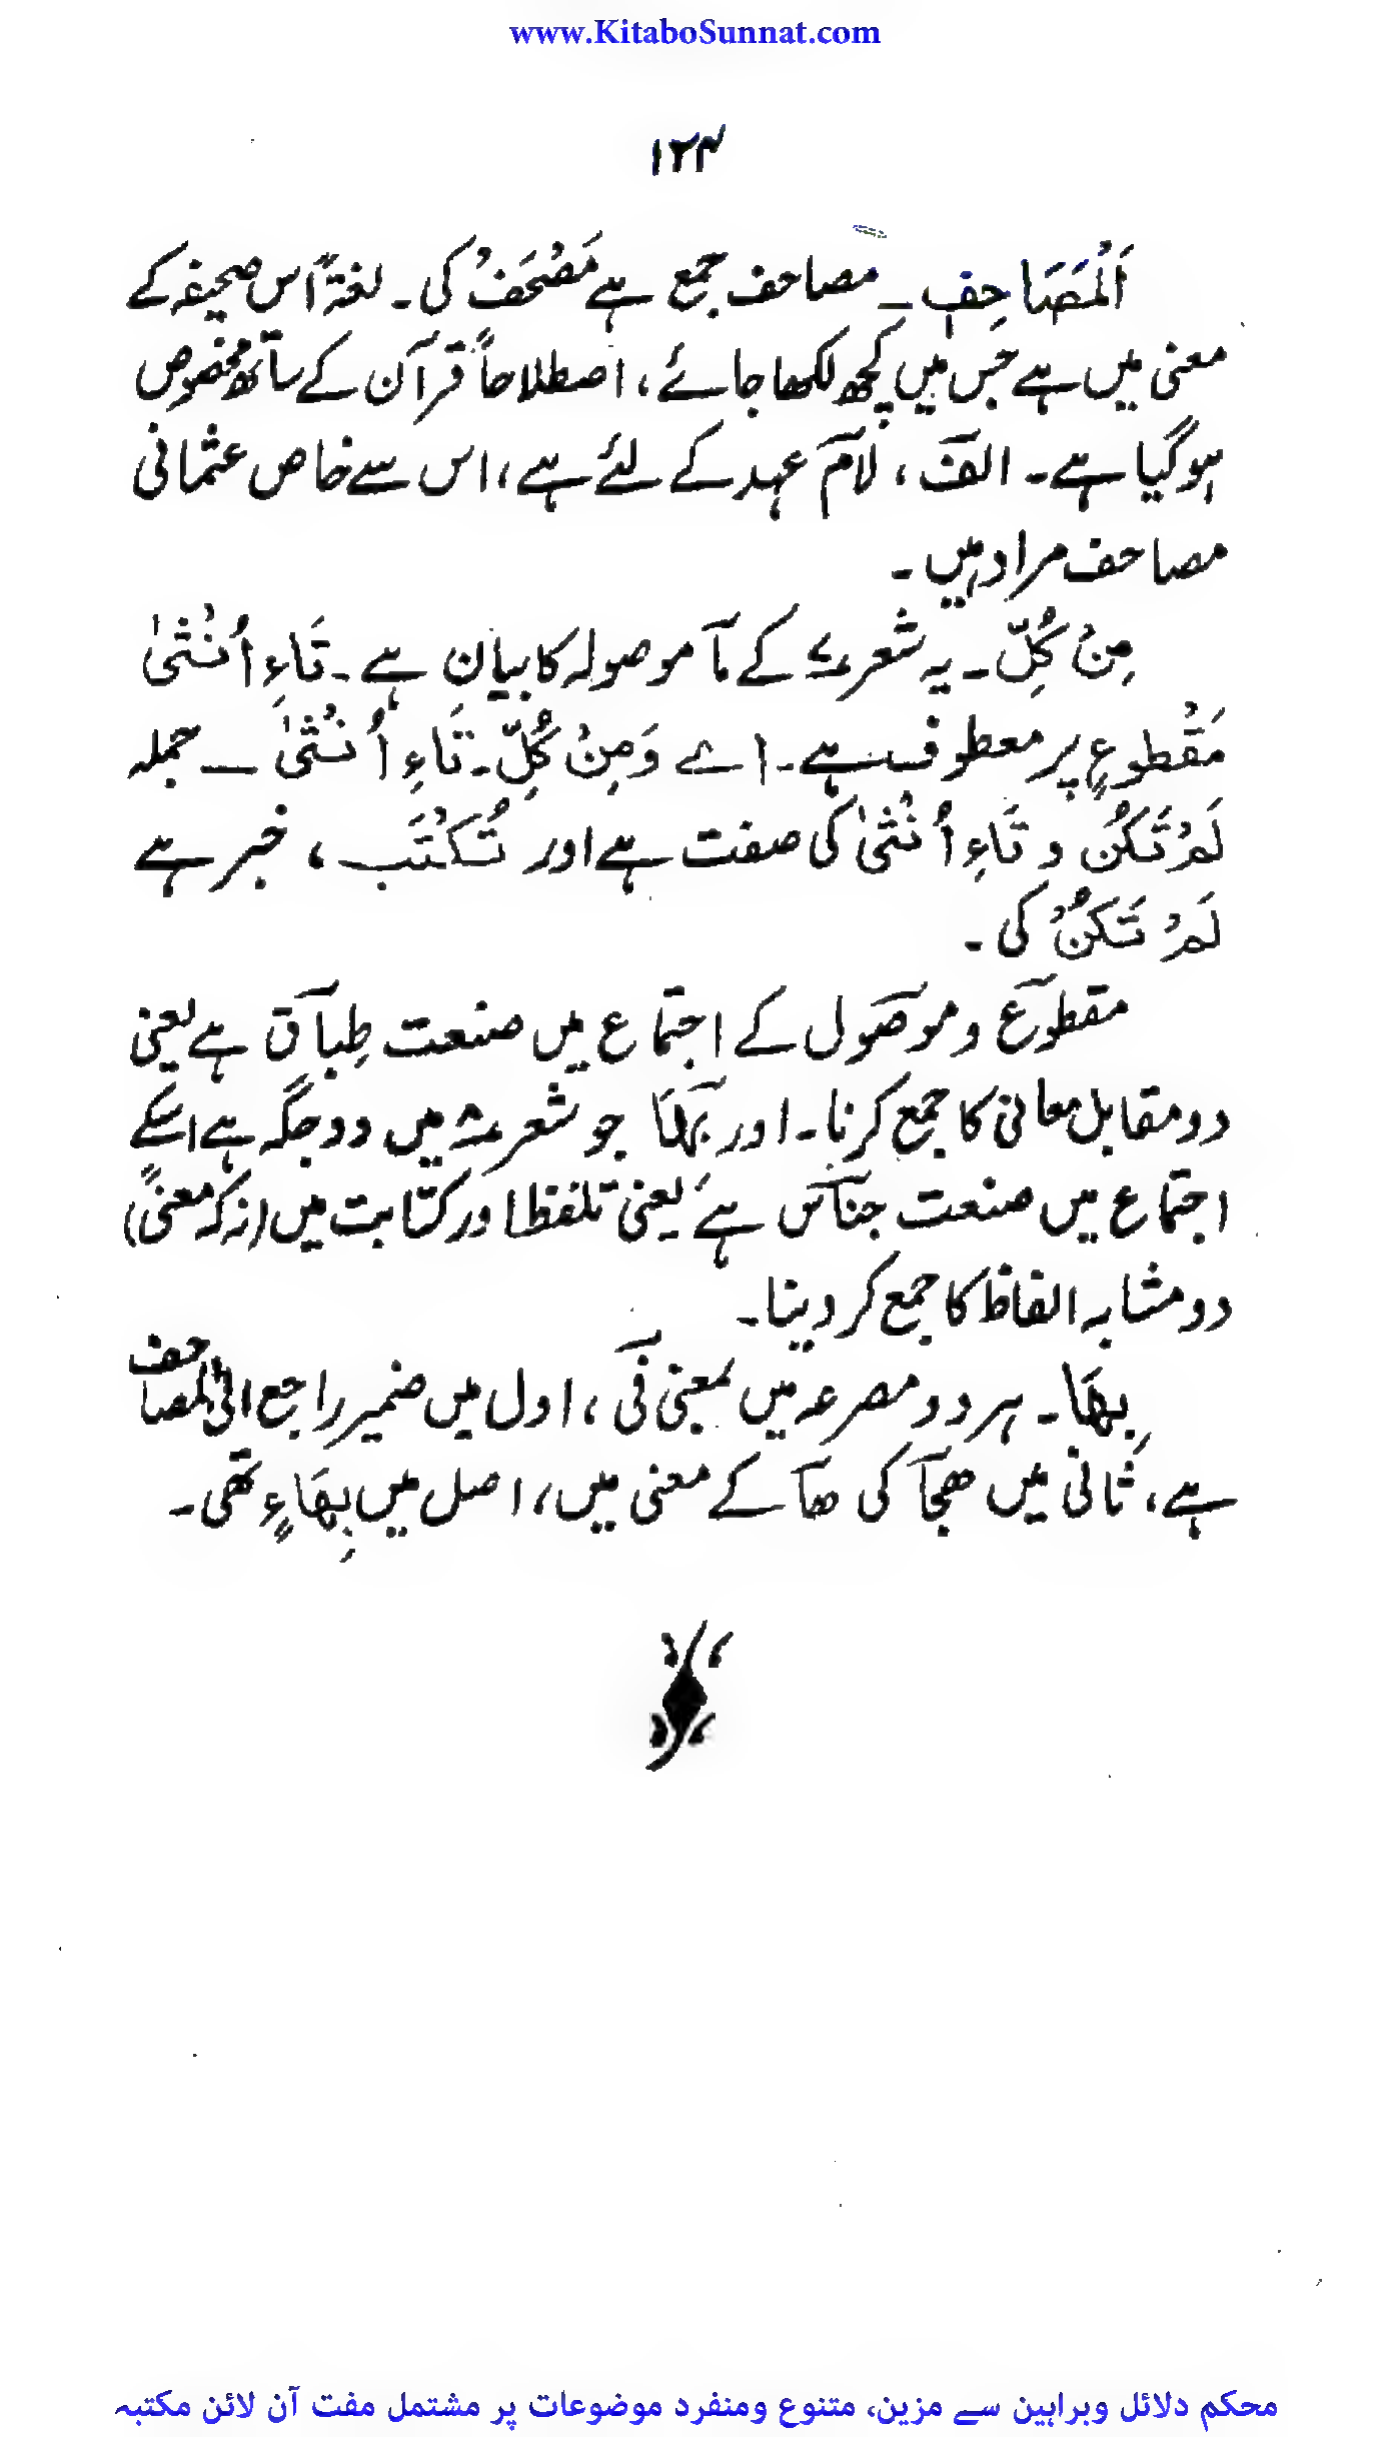 www.KitaboSunnat.com
۱۲۴
اَلْمَصَاحِفِ ۔ مصاحف جمع ہے مَصْحَفْ کی ۔ لغۃً اس صحیفہ کے
معنی میں ہے جس میں کچھ لکھا جائے ، اصطلاحاً قرآن کے ساتھ مخصوص
ہوگیا ہے ۔ الف ، لام عہد کے لئے ہے ، اس سے خاص عثمانی
مصاحف مراد ہیں ۔
مِنْ كُلِّ ۔ یہ شعر ۷ کے ما موصولہ کا بیان ہے ۔ تَاءِ اُنْثىٰ
مَقْطوعٍ پر معطوف ہے ۔ اے وَمِنْ كُلِّ ۔ تَاءِ اُنْثىٰ ۔ جملہ
لَمْ تَكُنْ و تَاءِ اُنْثىٰ کی صفت ہے اور تُكْتَب ، خبر ہے
لَمْ تَكُنْ کی ۔
مقطوع و موصول کے اجتماع میں صنعت طِباق ہے یعنی
دو مقابل معانی کا جمع کرنا ۔ اور بِهَا جو شعر ۸ میں دو جگہ ہے اسکے
اجتماع میں صنعت جناس ہے یعنی تلفظ اور کتابت میں (نہ کہ معنیً)
دو مشابہ الفاظ کا جمع کر دینا ۔
بِهَا ۔ ہر دو مصرعہ میں بمعنی فی ، اول میں ضمیر راجع الی المصاحف
ہے ، ثانی میں ھجا کی ھا کے معنی میں ، اصل میں بِهَاءٍ تھی ۔
محکم دلائل وبراہین سے مزین، متنوع ومنفرد موضوعات پر مشتمل مفت آن لائن مکتبہ